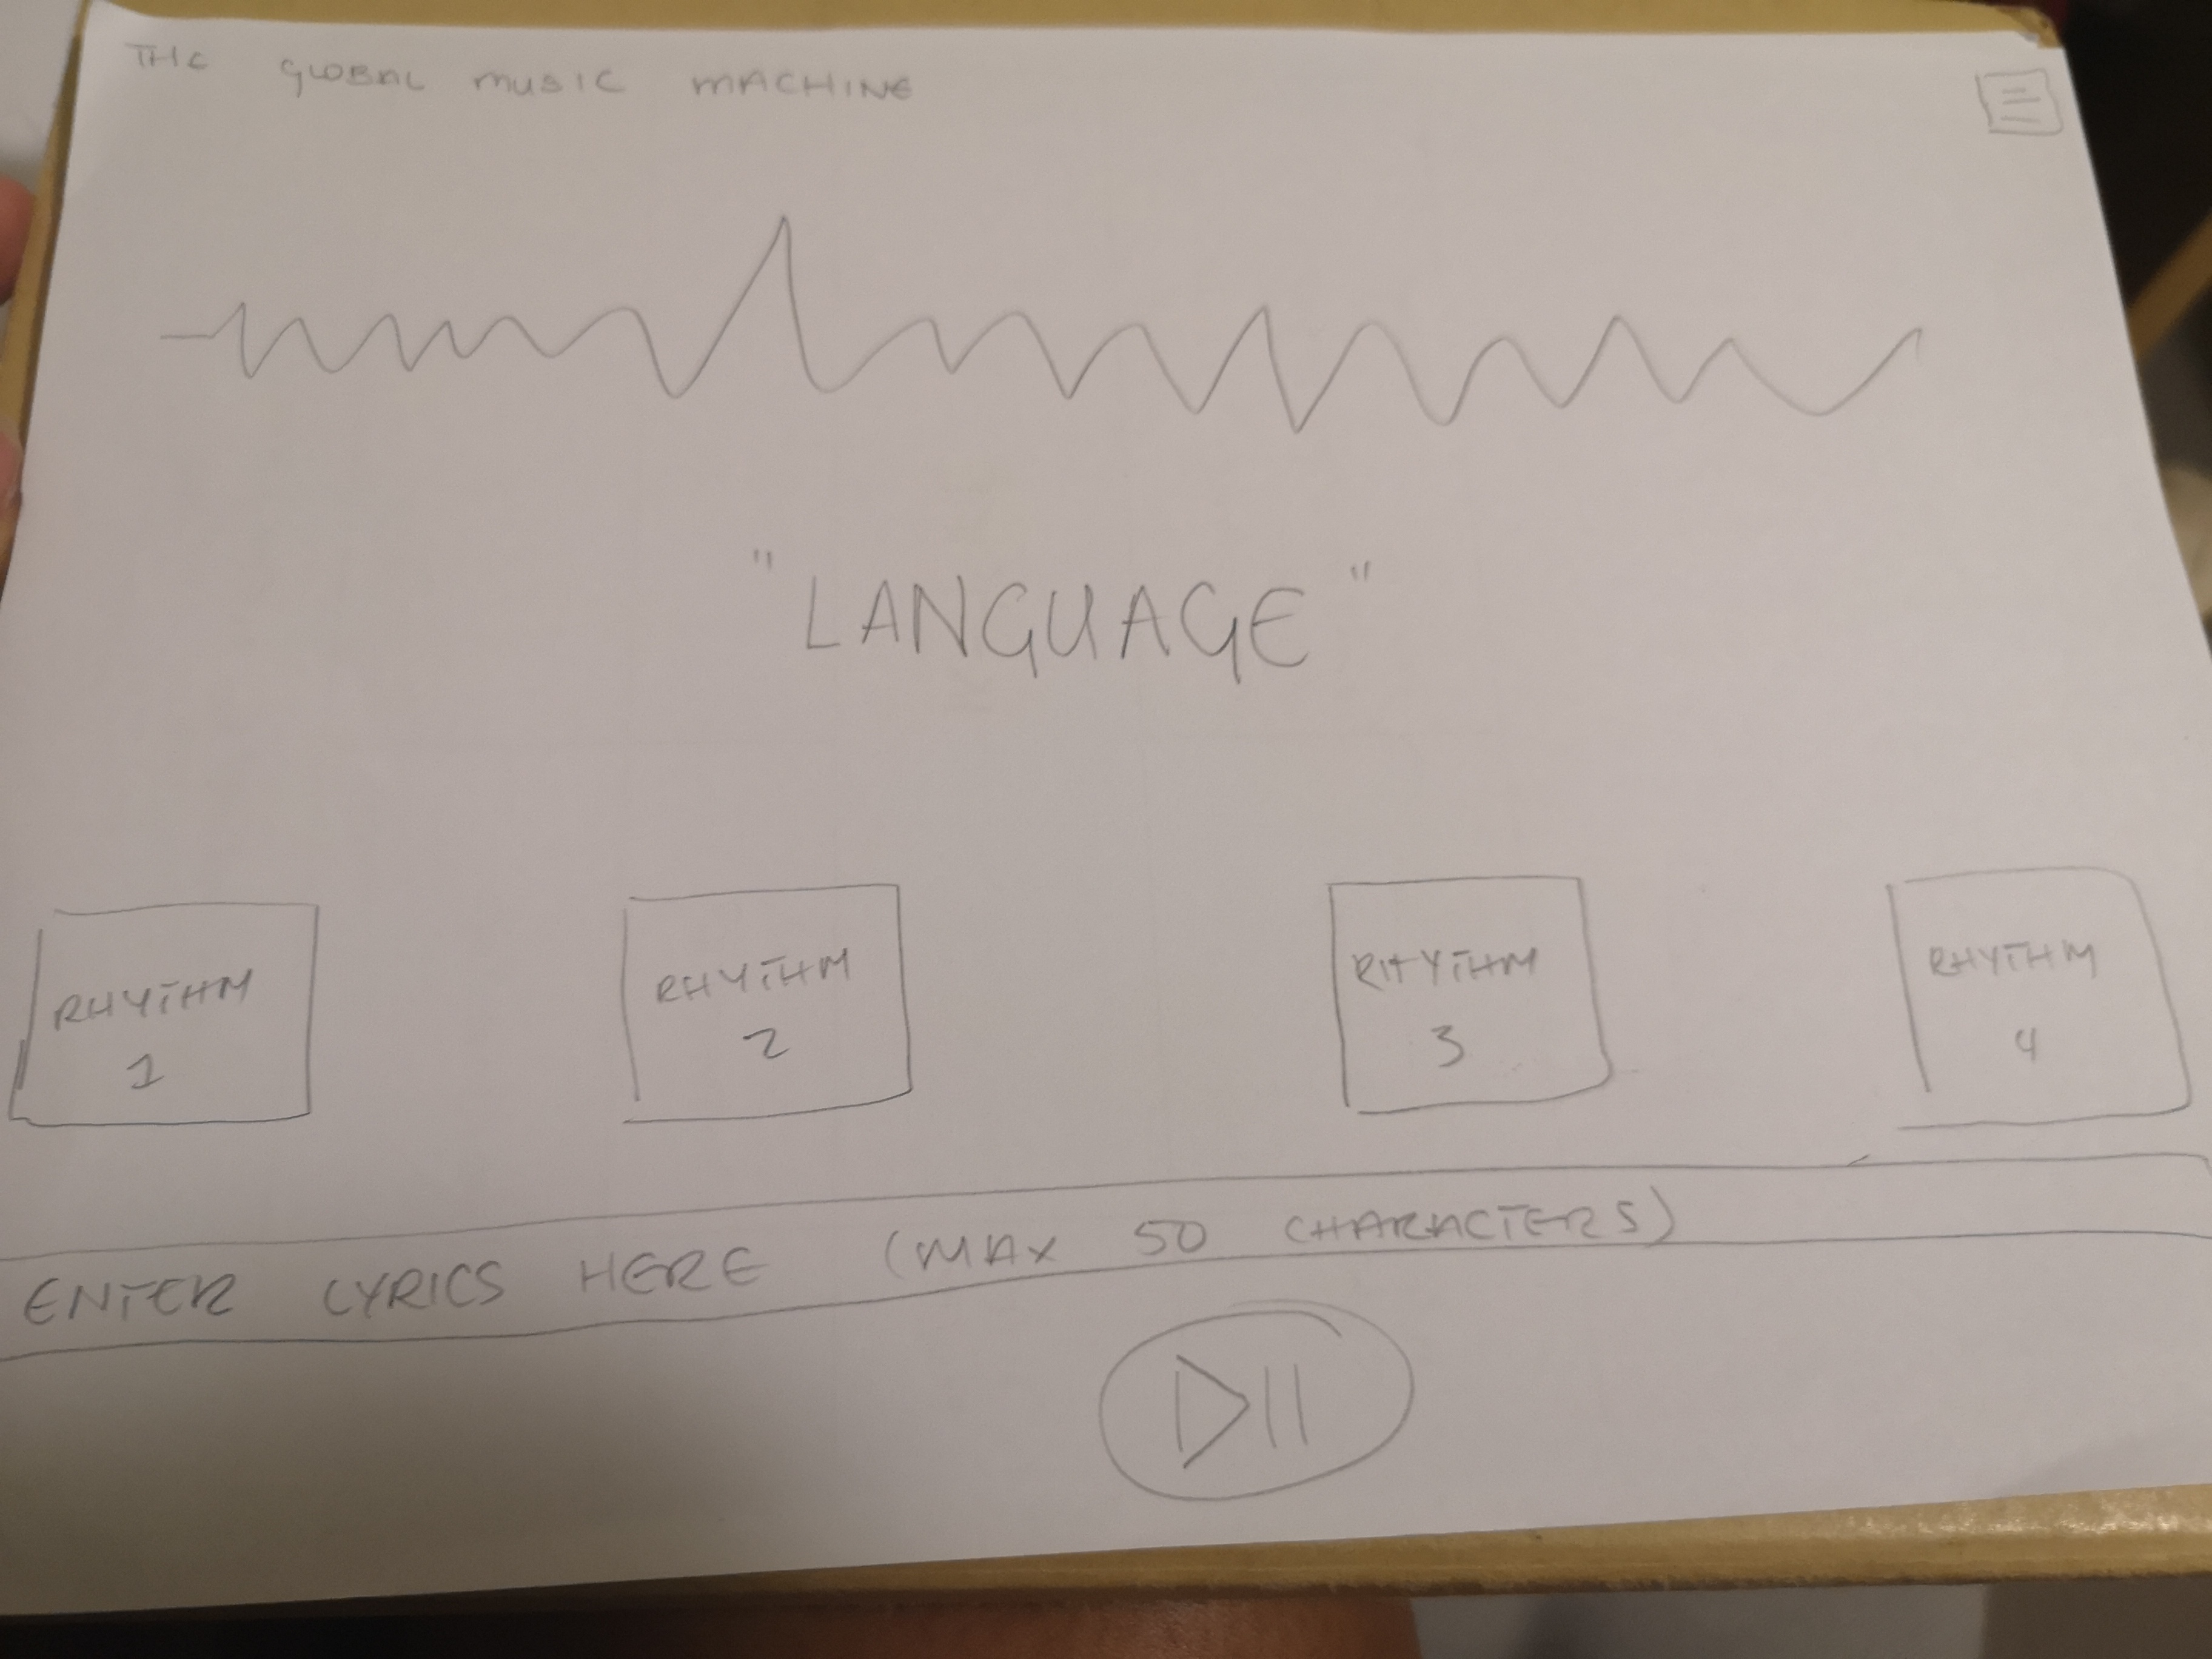 THE GLOBAL MUSIC MACHINE
"LANGUAGE"
RHYTHM
1
RHYTHM
2
RHYTHM
3
RHYTHM
4
ENTER LYRICS HERE (MAX 50 CHARACTERS)